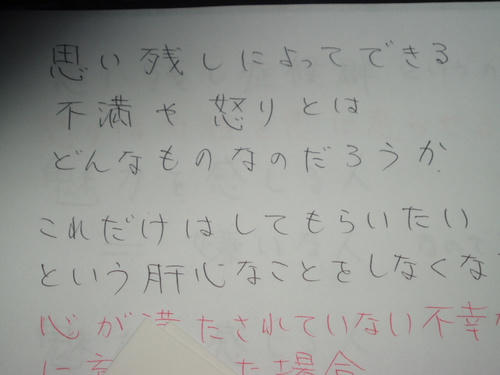 思い残しによってできる
不満や怒りとは
どんなものなのだろうか
これだけはしてもらいたい
という肝心なことをしなくな
心が満たされていない不幸
に た場合